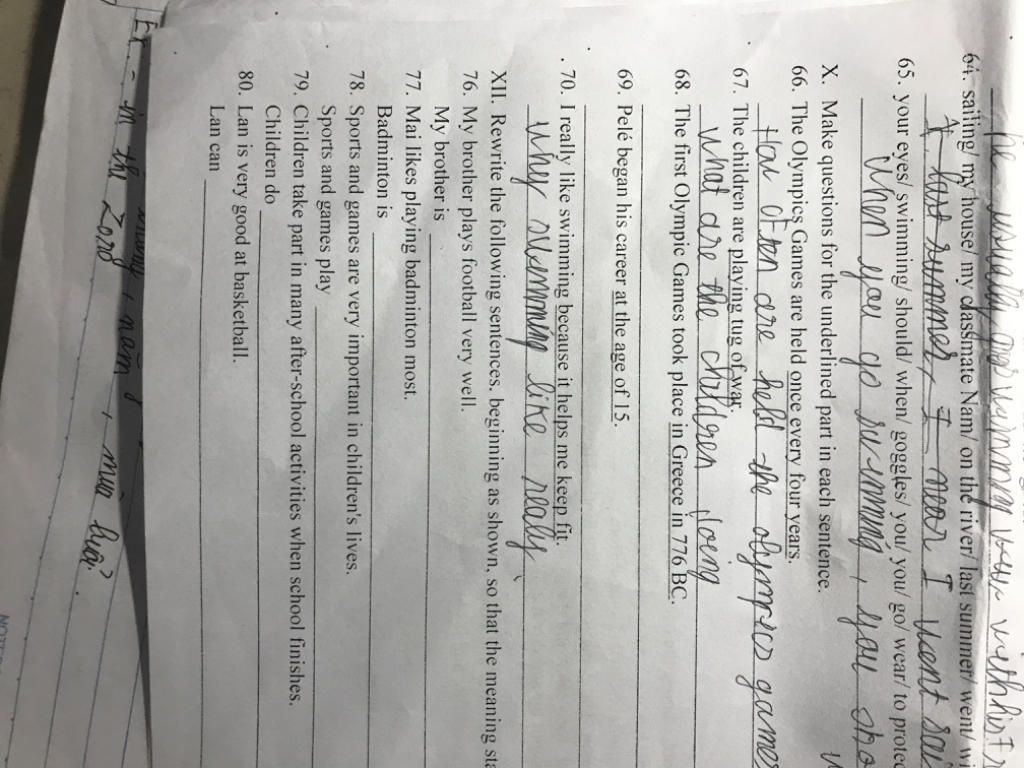 he usually
64. sailing/ my house/ my classmate Nam/ on the river/ last summer/ went/
last summer, I near I went
65. your eyes/ swimming/ should/ when/ goggles/ you/ you/ go/ wear/ to protec
When you go swimming, you sho
X. Make questions for the underlined part in each sentence.
66. The Olympics Games are held once every four years.
How often are held the olympics games
67. The children are playing tug of war.
What are the children doing
68. The first Olympic Games took place in Greece in 776 BC.
69. Pelé began his career at the age of 15.
70. I really like swimming because it helps me keep fit.
Why swimming like realy
XII. Rewrite the following sentences, beginning as shown, so that the meaning sta
76. My brother plays football very well.
My brother is
77. Mai likes playing badminton most.
Badminton is
78. Sports and games are very important in children's lives.
Sports and games play
79. Children take part in many after-school activities when school finishes.
Children do
80. Lan is very good at basketball.
Lan can
in the zoro